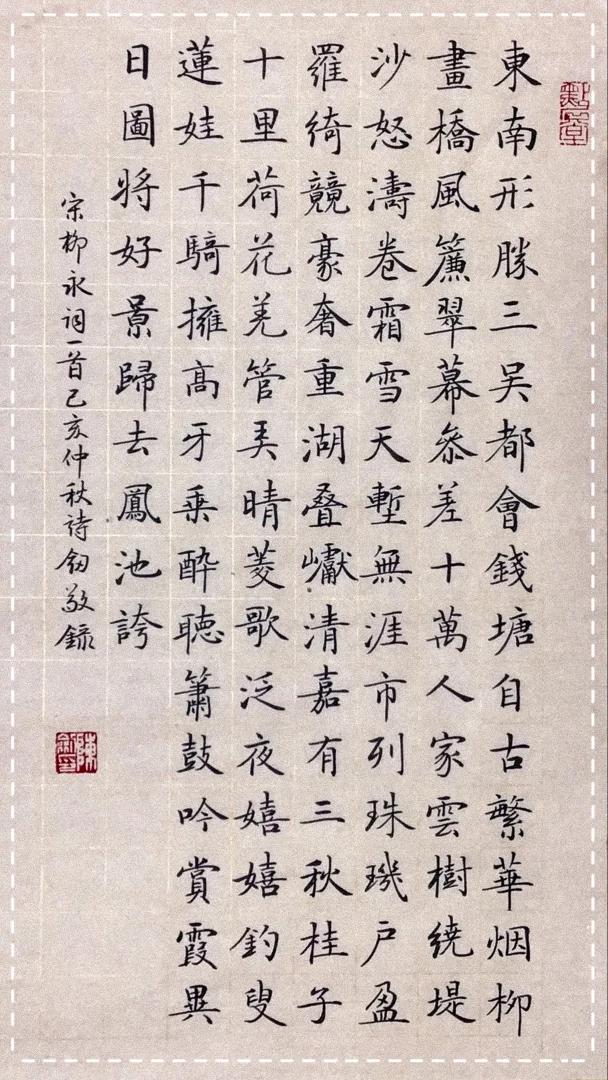 東南形勝三吳都會錢塘自古繁華烟柳
畫橋風簾翠幕叅差十萬人家雲樹繞堤
沙怒濤卷霜雪天塹無涯市列珠璣戶盈
羅綺競豪奢重湖疊巘清嘉有三秋桂子
十里荷花羌管弄晴菱歌泛夜嬉嬉釣叟
蓮娃千騎擁高牙乘醉聽簫鼓吟賞霞異
日圖將好景歸去鳳池誇
宋柳永詞一首己亥仲秋詩釰敬錄